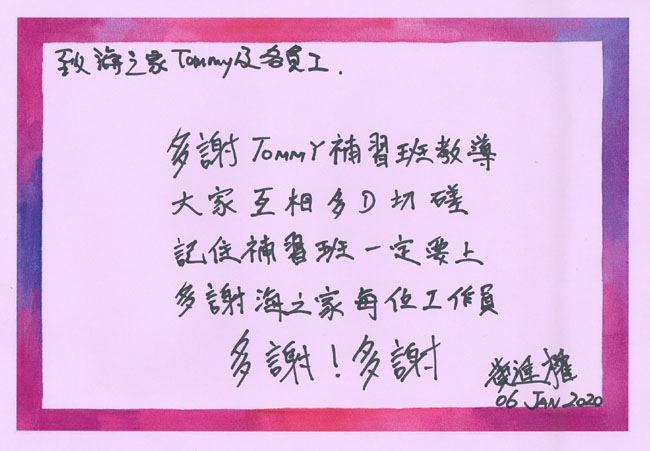 致海之家Tommy及各員工.
多謝TOMMY補習班教導
大家互相多D切磋
記住補習班一定要上
多謝海之家每位工作員
多謝！多謝
進權
06 JAN 2020